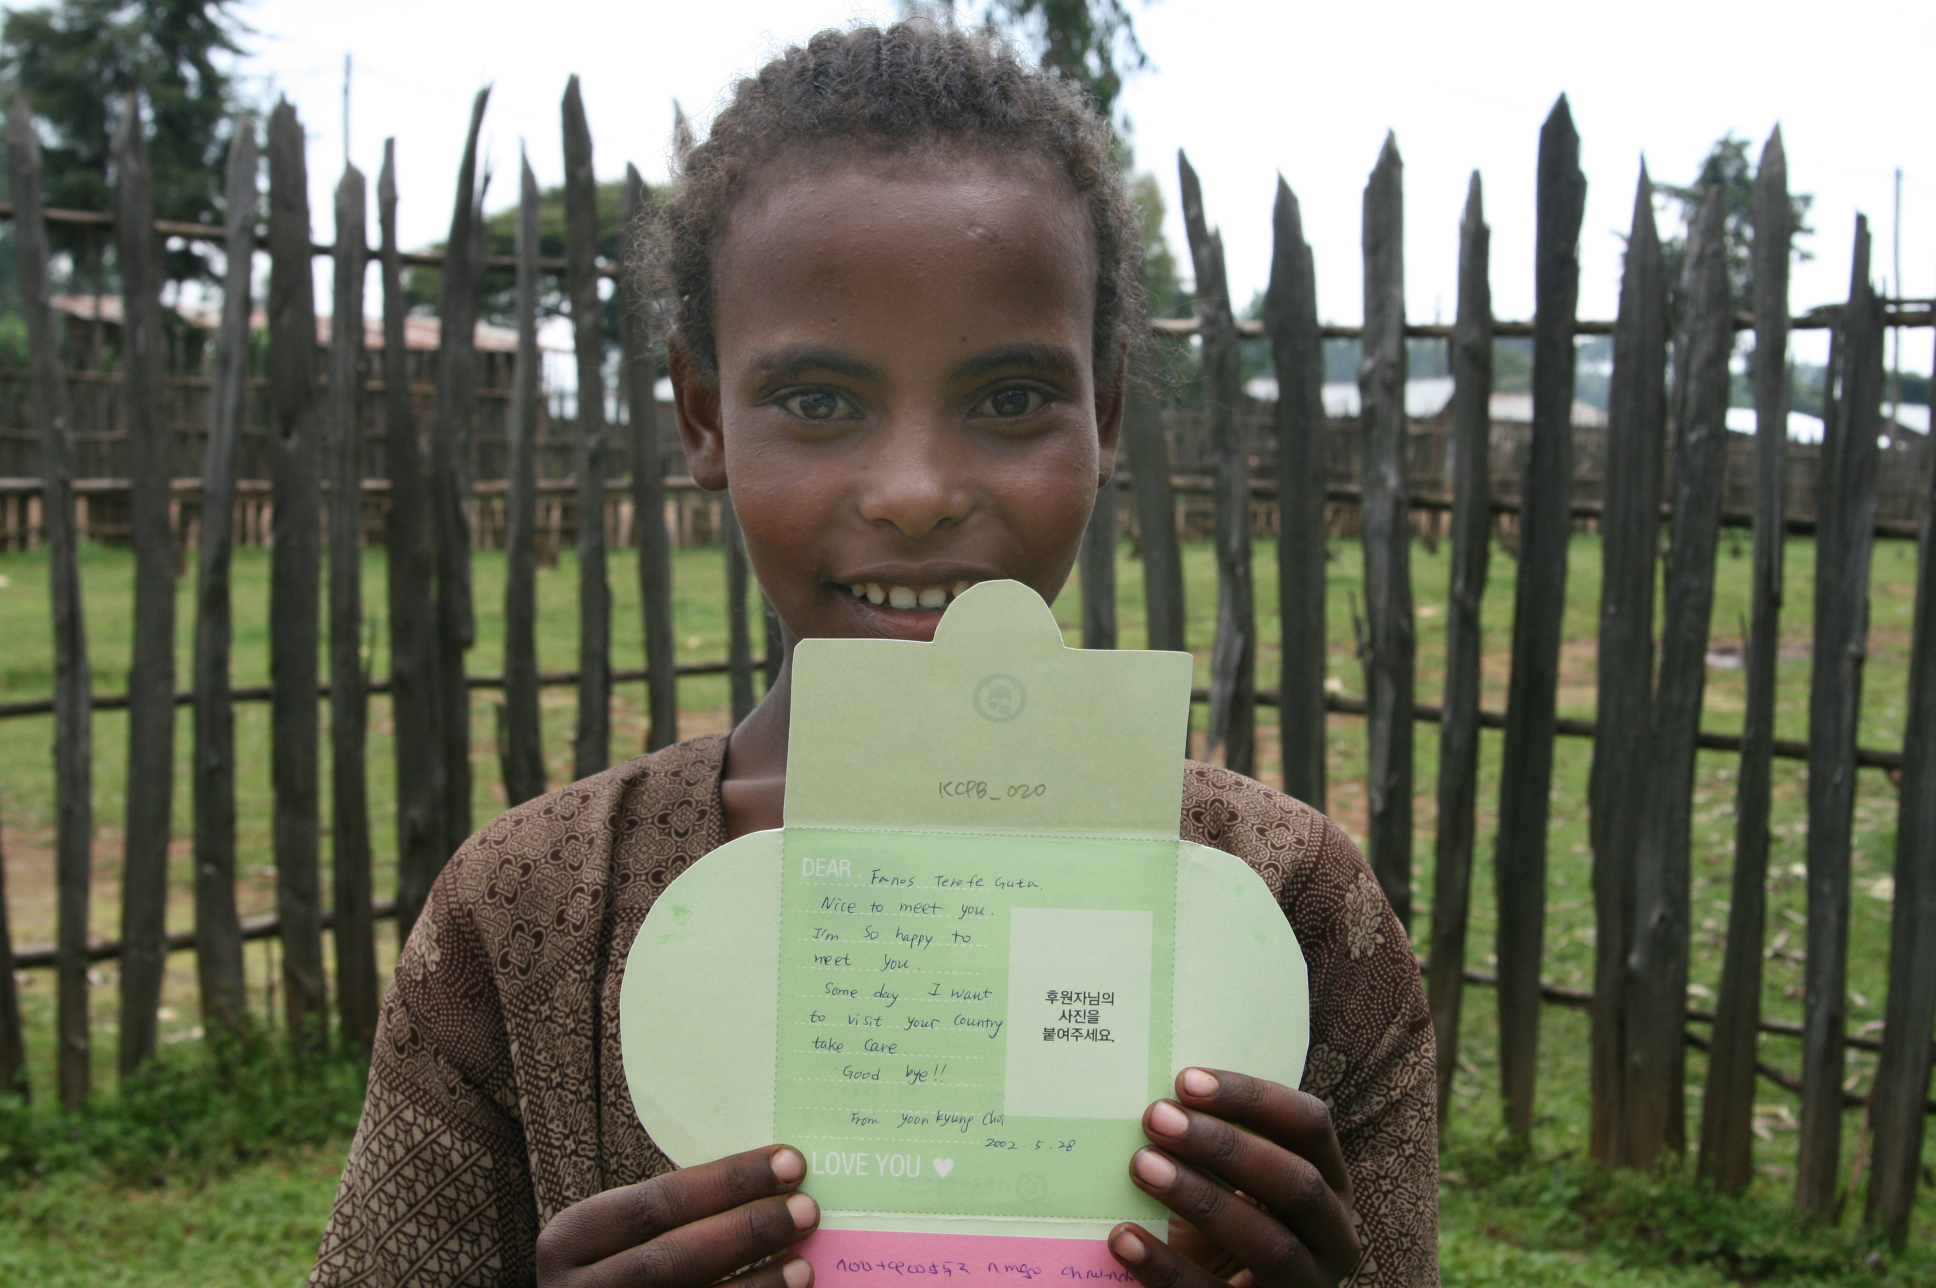 KCPB_020
DEAR. Fanos Terefe Guta.
Nice to meet you.
I'm so happy to
meet you.
Some day I want
to visit your country
take care.
Good bye!!
From yoon kyung Choi
2002. 5. 28
LOVE YOU ♥
후원자님의
사진을
붙여주세요.